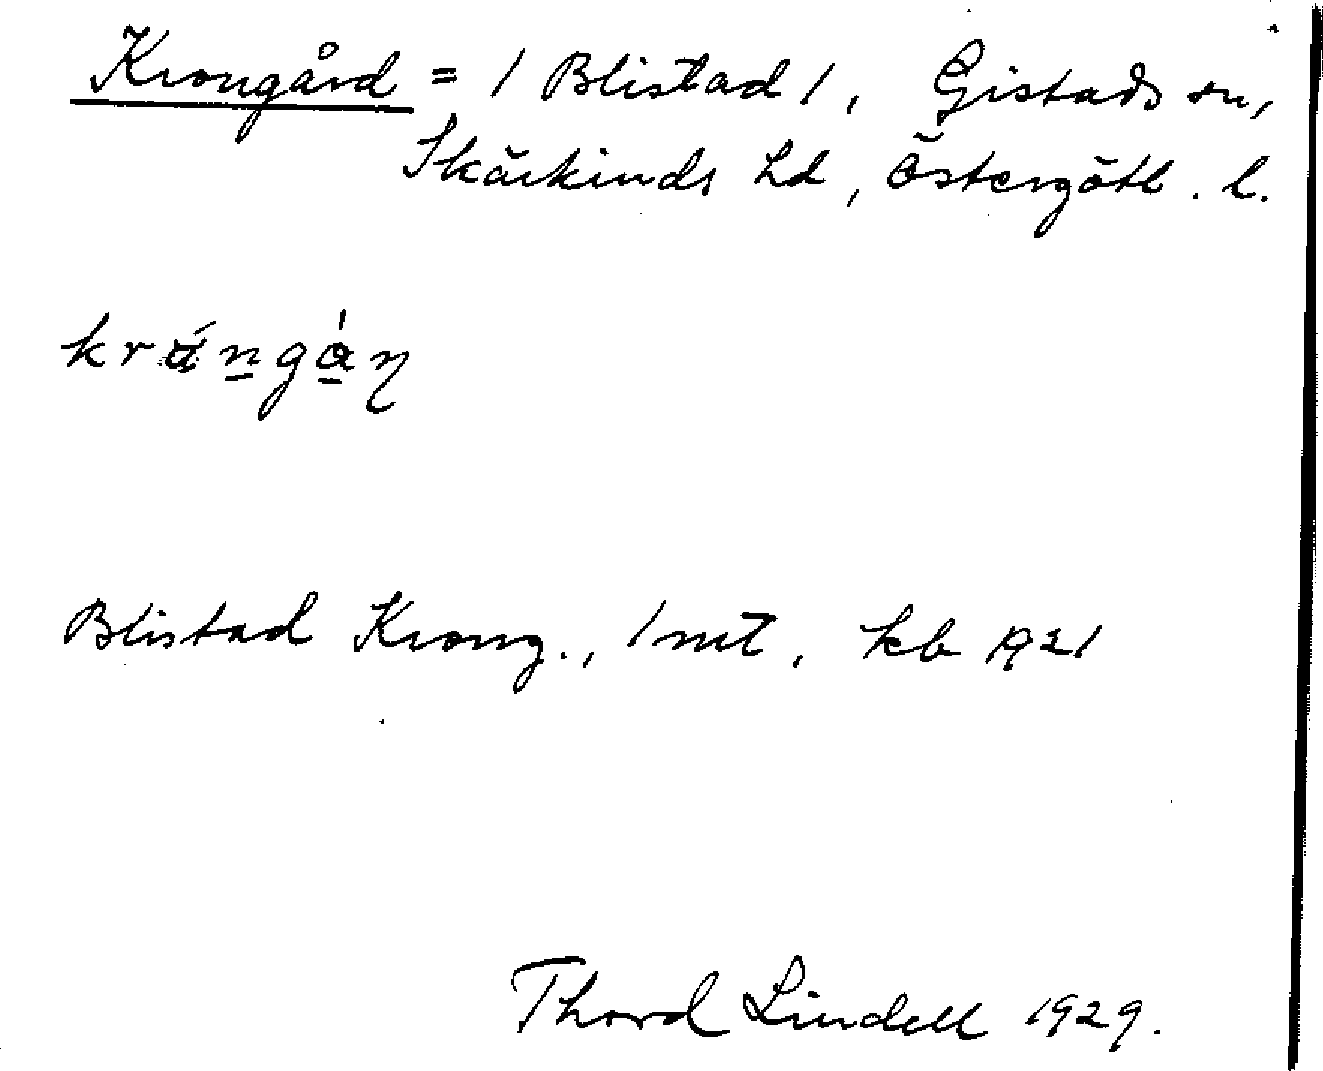 Krongård = / Blistad /, Gistads sn,
Skärkinds hd, Östergötl. l.
Blistad Krong., 1 mt, kb 1921
Thord Lindell 1929.